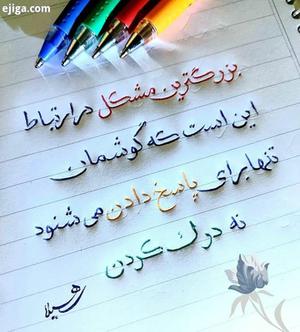 ejiga.com
بزرگترین مشکل در ارتباط
این است که گوشمان
تنها برای پاسخ دادن می شنود
نه درک کردن